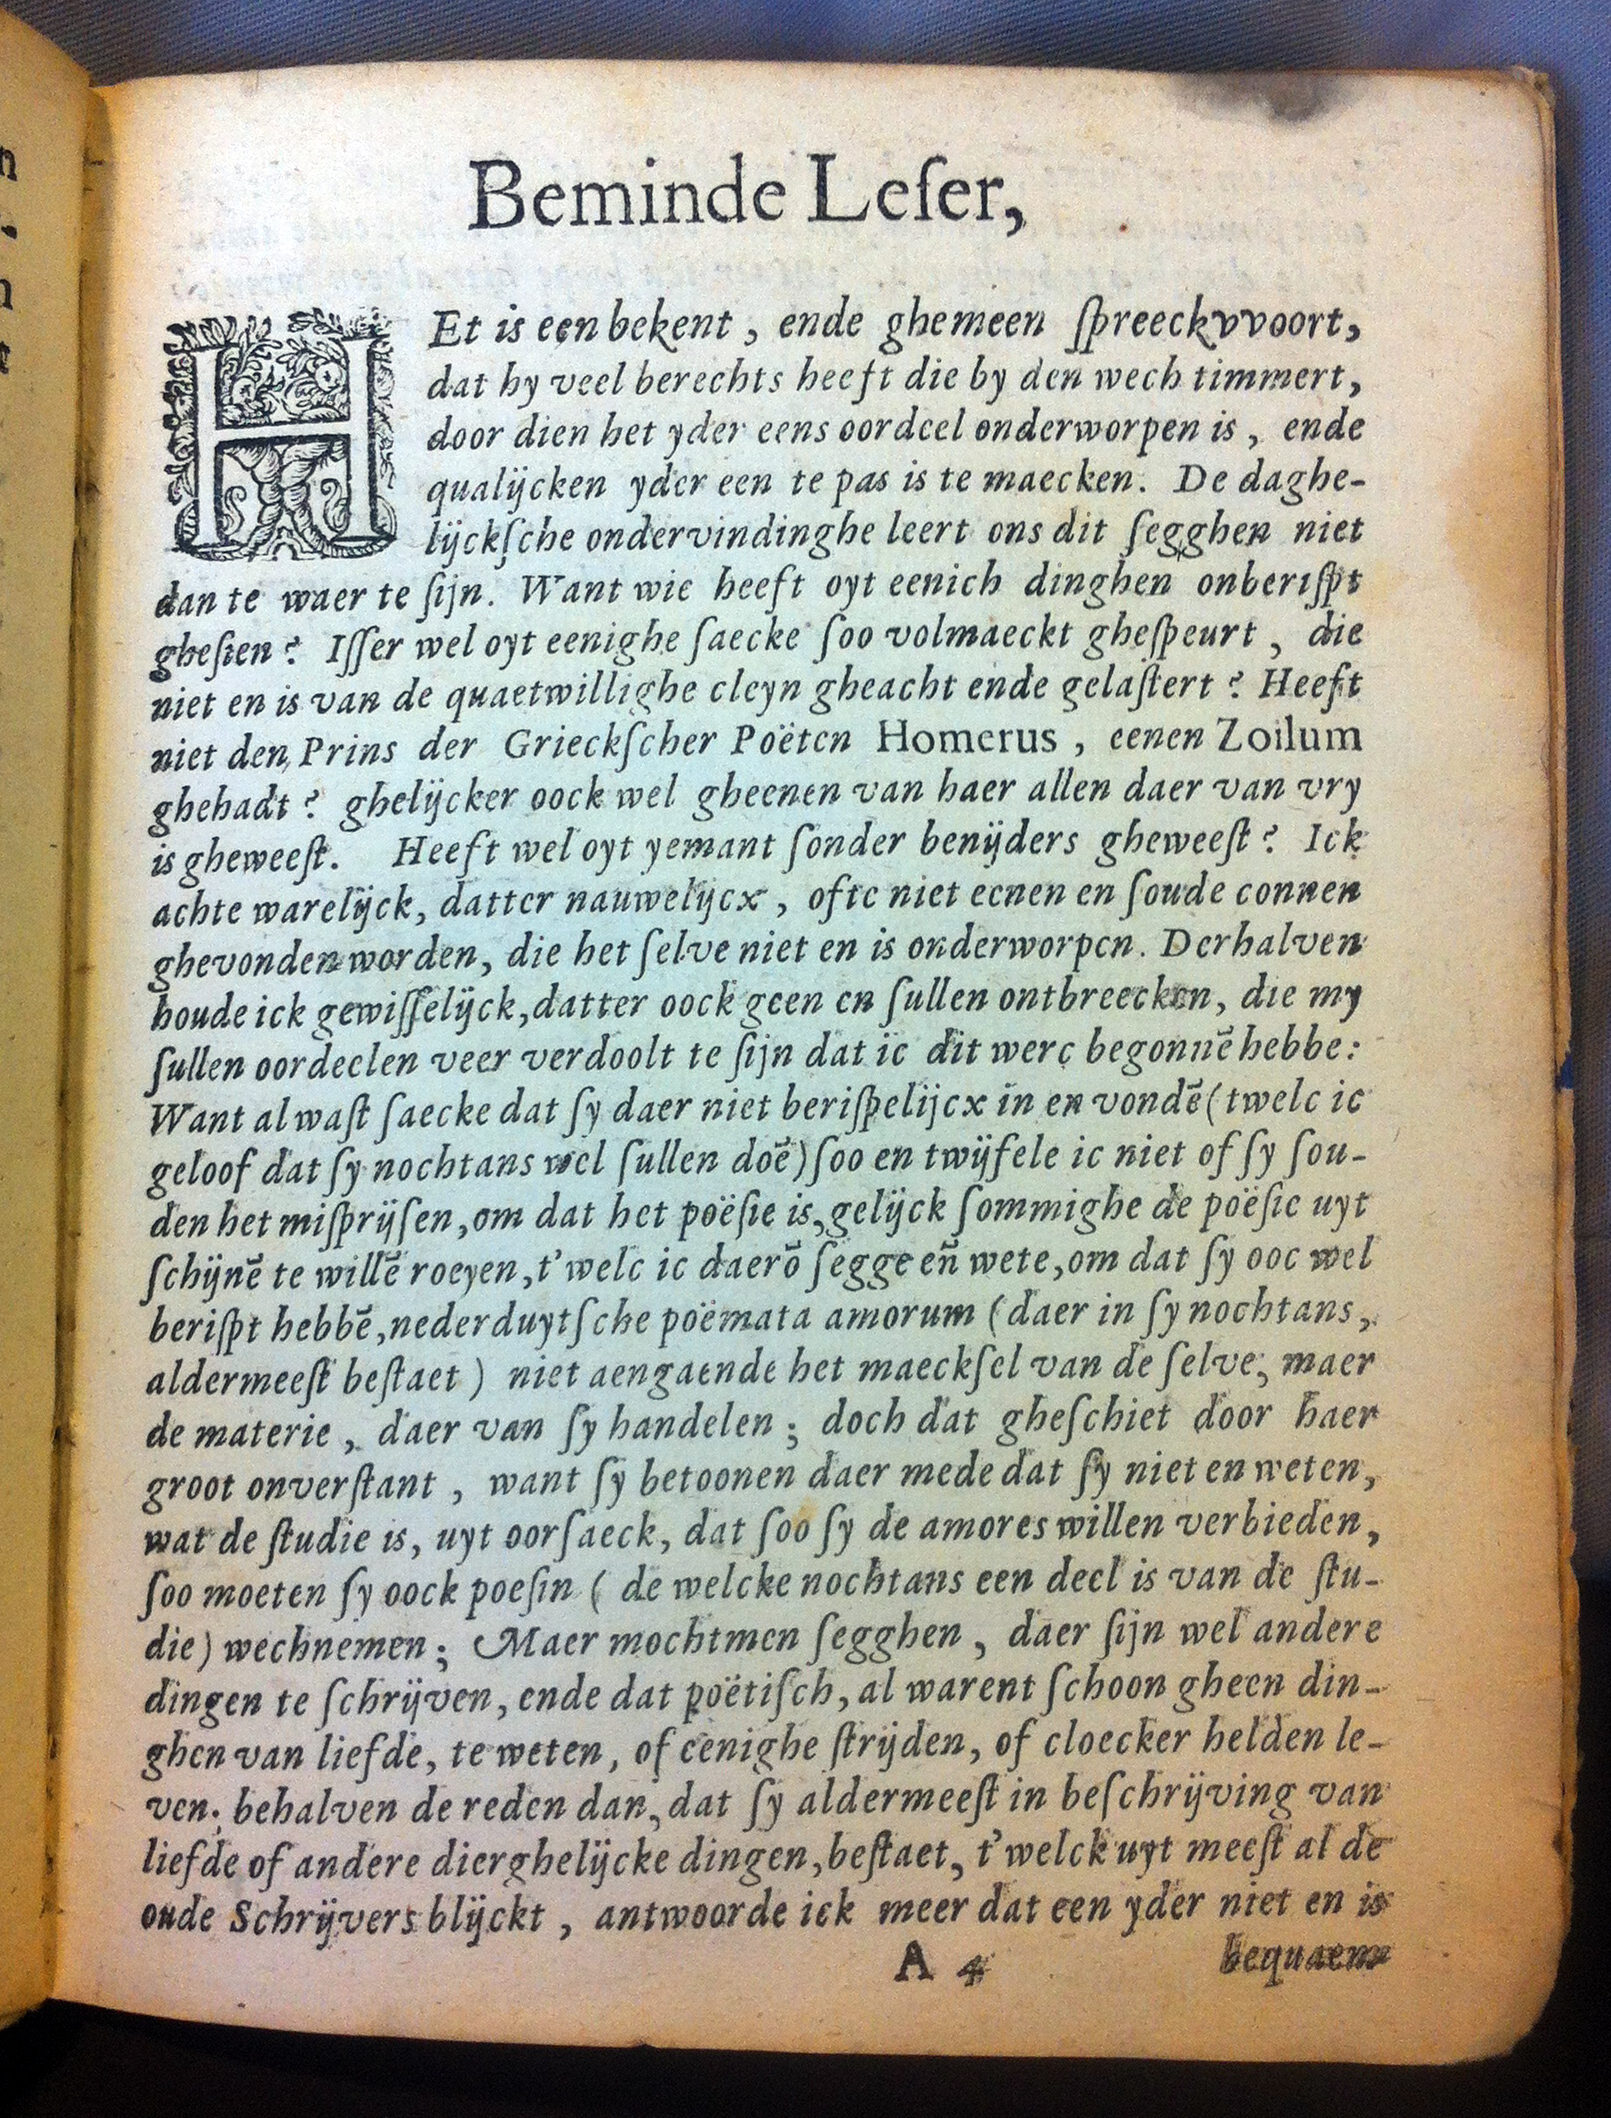 Beminde Leſer,
HEt is een bekent, ende ghemeen ſpreeckvvoort,
dat hy veel berechts heeft die by den wech timmert,
door dien het yder eens oordeel onderworpen is, ende
qualijcken yder een te pas is te maecken. De daghe-
lijckſche ondervindinghe leert ons dit ſegghen niet
dan te waer te ſijn. Want wie heeft oyt eenich dinghen onberiſpt
gheſien? Iſſer wel oyt eenighe ſaecke ſoo volmaeckt gheſpeurt, die
niet en is van de quaetwillighe cleyn gheacht ende gelaſtert? Heeft
niet den Prins der Grieckſcher Poëten Homerus, eenen Zoilum
ghehadt? ghelijcker oock wel gheenen van haer allen daer van vry
is gheweeſt. Heeft wel oyt yemant ſonder benijders gheweeſt? Ick
achte warelijck, datter nauwelijcx, ofte niet eenen en ſoude connen
ghevonden worden, die het ſelve niet en is onderworpen. Derhalven
houde ick gewiſſelijck, datter oock geen en ſullen ontbreecken, die my
ſullen oordeelen veer verdoolt te ſijn dat ic dit werc begonnē hebbe:
Want al waſt ſaecke dat ſy daer niet beriſpelijcx in en vondē (twelc ic
geloof dat ſy nochtans wel ſullen doē) ſoo en twijfele ic niet of ſy ſou-
den het miſprijſen, om dat het poëſie is, gelijck ſommighe de poëſie uyt
ſchijnē te willē roeyen, t'welc ic daerō ſegge en̄ wete, om dat ſy ooc wel
beriſpt hebbē, nederduytſche poëmata amorum (daer in ſy nochtans,
aldermeeſt beſtaet) niet aengaende het maeckſel van de ſelve, maer
de materie, daer van ſy handelen; doch dat gheſchiet door haer
groot onverſtant, want ſy betoonen daer mede dat ſy niet en weten,
wat de ſtudie is, uyt oorſaeck, dat ſoo ſy de amores willen verbieden,
ſoo moeten ſy oock poeſin (de welcke nochtans een deel is van de ſtu-
die) wechnemen; Maer mochtmen ſegghen, daer ſijn wel andere
dingen te ſchrijven, ende dat poëtiſch, al warent ſchoon gheen din-
ghen van liefde, te weten, of eenighe ſtrijden, of cloecker helden le-
ven; behalven de reden dan, dat ſy aldermeeſt in beſchrijving van
liefde of andere dierghelijcke dingen, beſtaet, t'welck uyt meeſt al de
oude Schrijvers blijckt, antwoorde ick meer dat een yder niet en is
A 4 bequaem